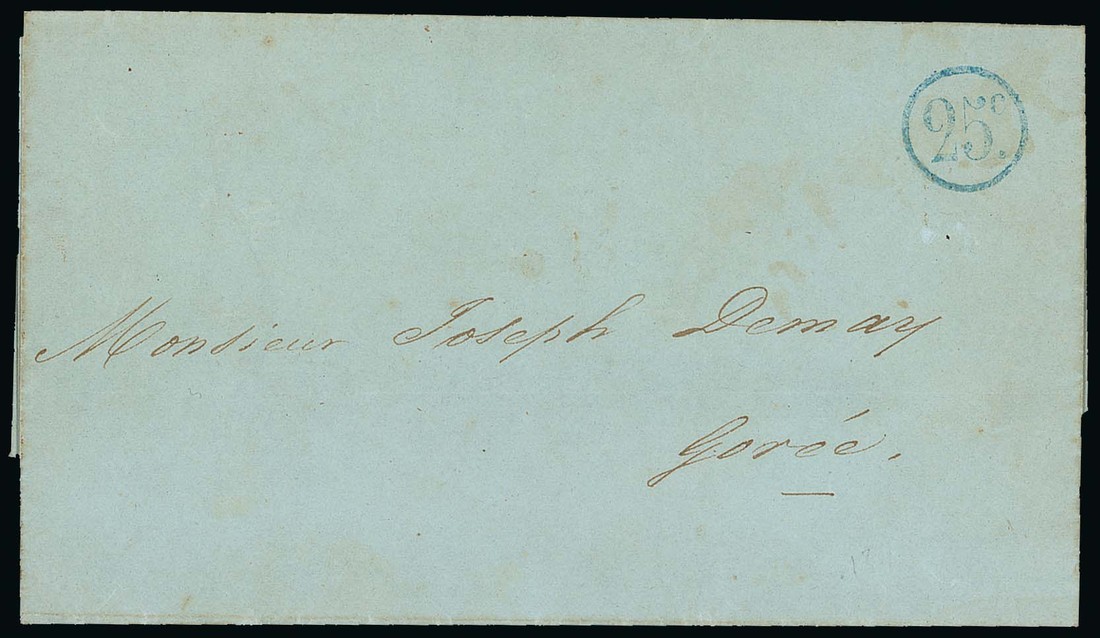 25c.
Monsieur Joseph Demay
Gorée.
17